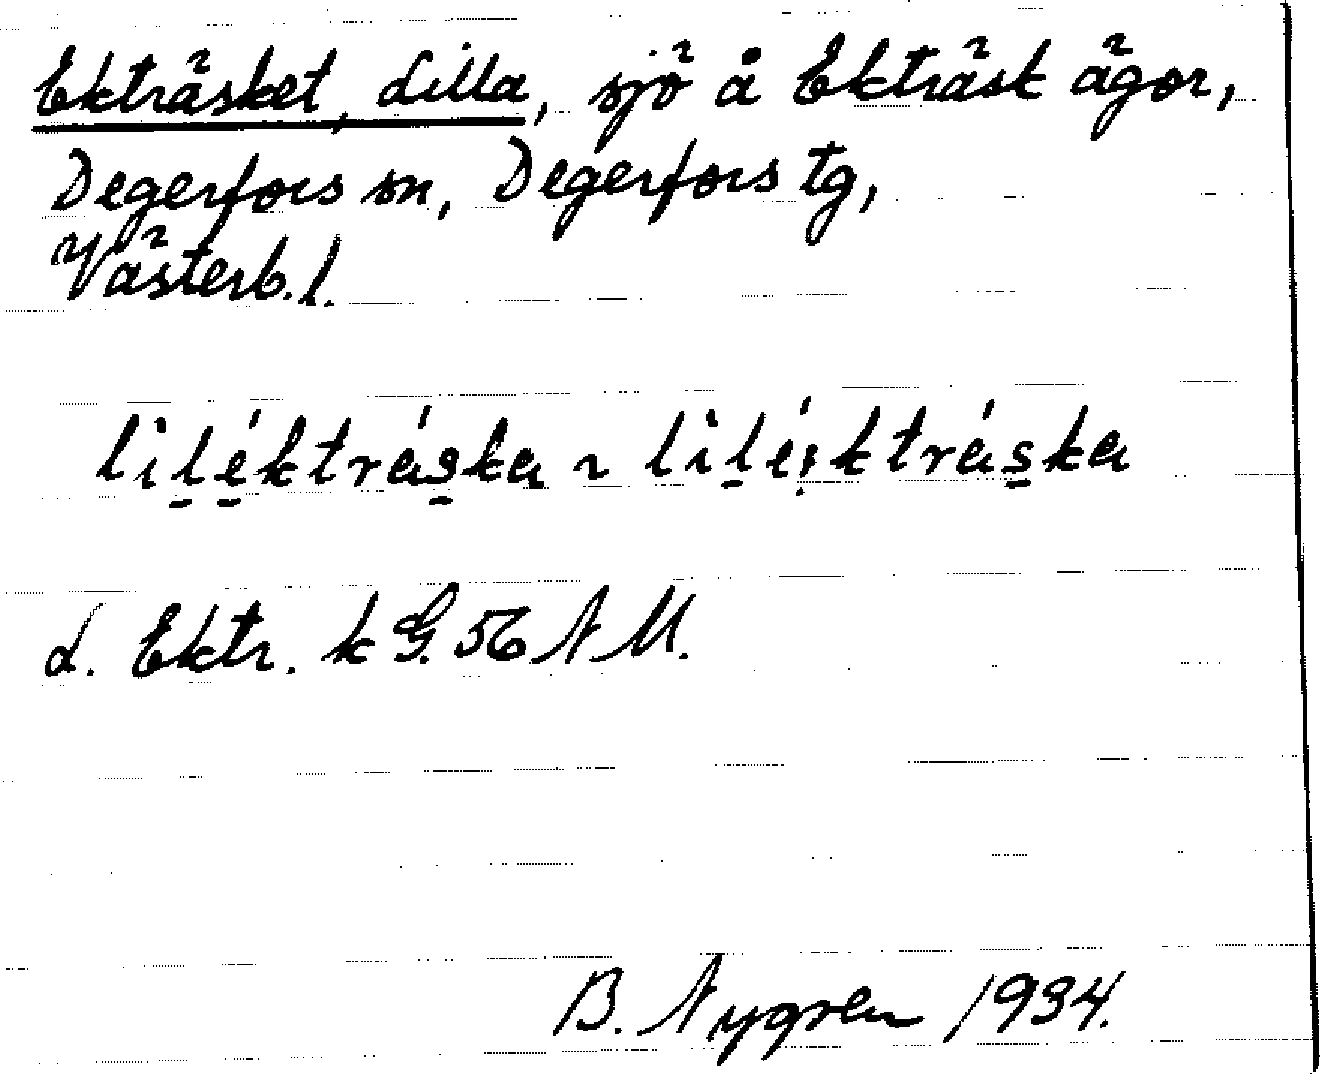 Ekträsket, Lilla, sjö å Ekträsk ägor,
Degerfors sn, Degerfors tg,
Västerb. l.
lilékträska ~ liléiktráska
L. Ektr. k G. 56 N M.
B. Nygren 1934.